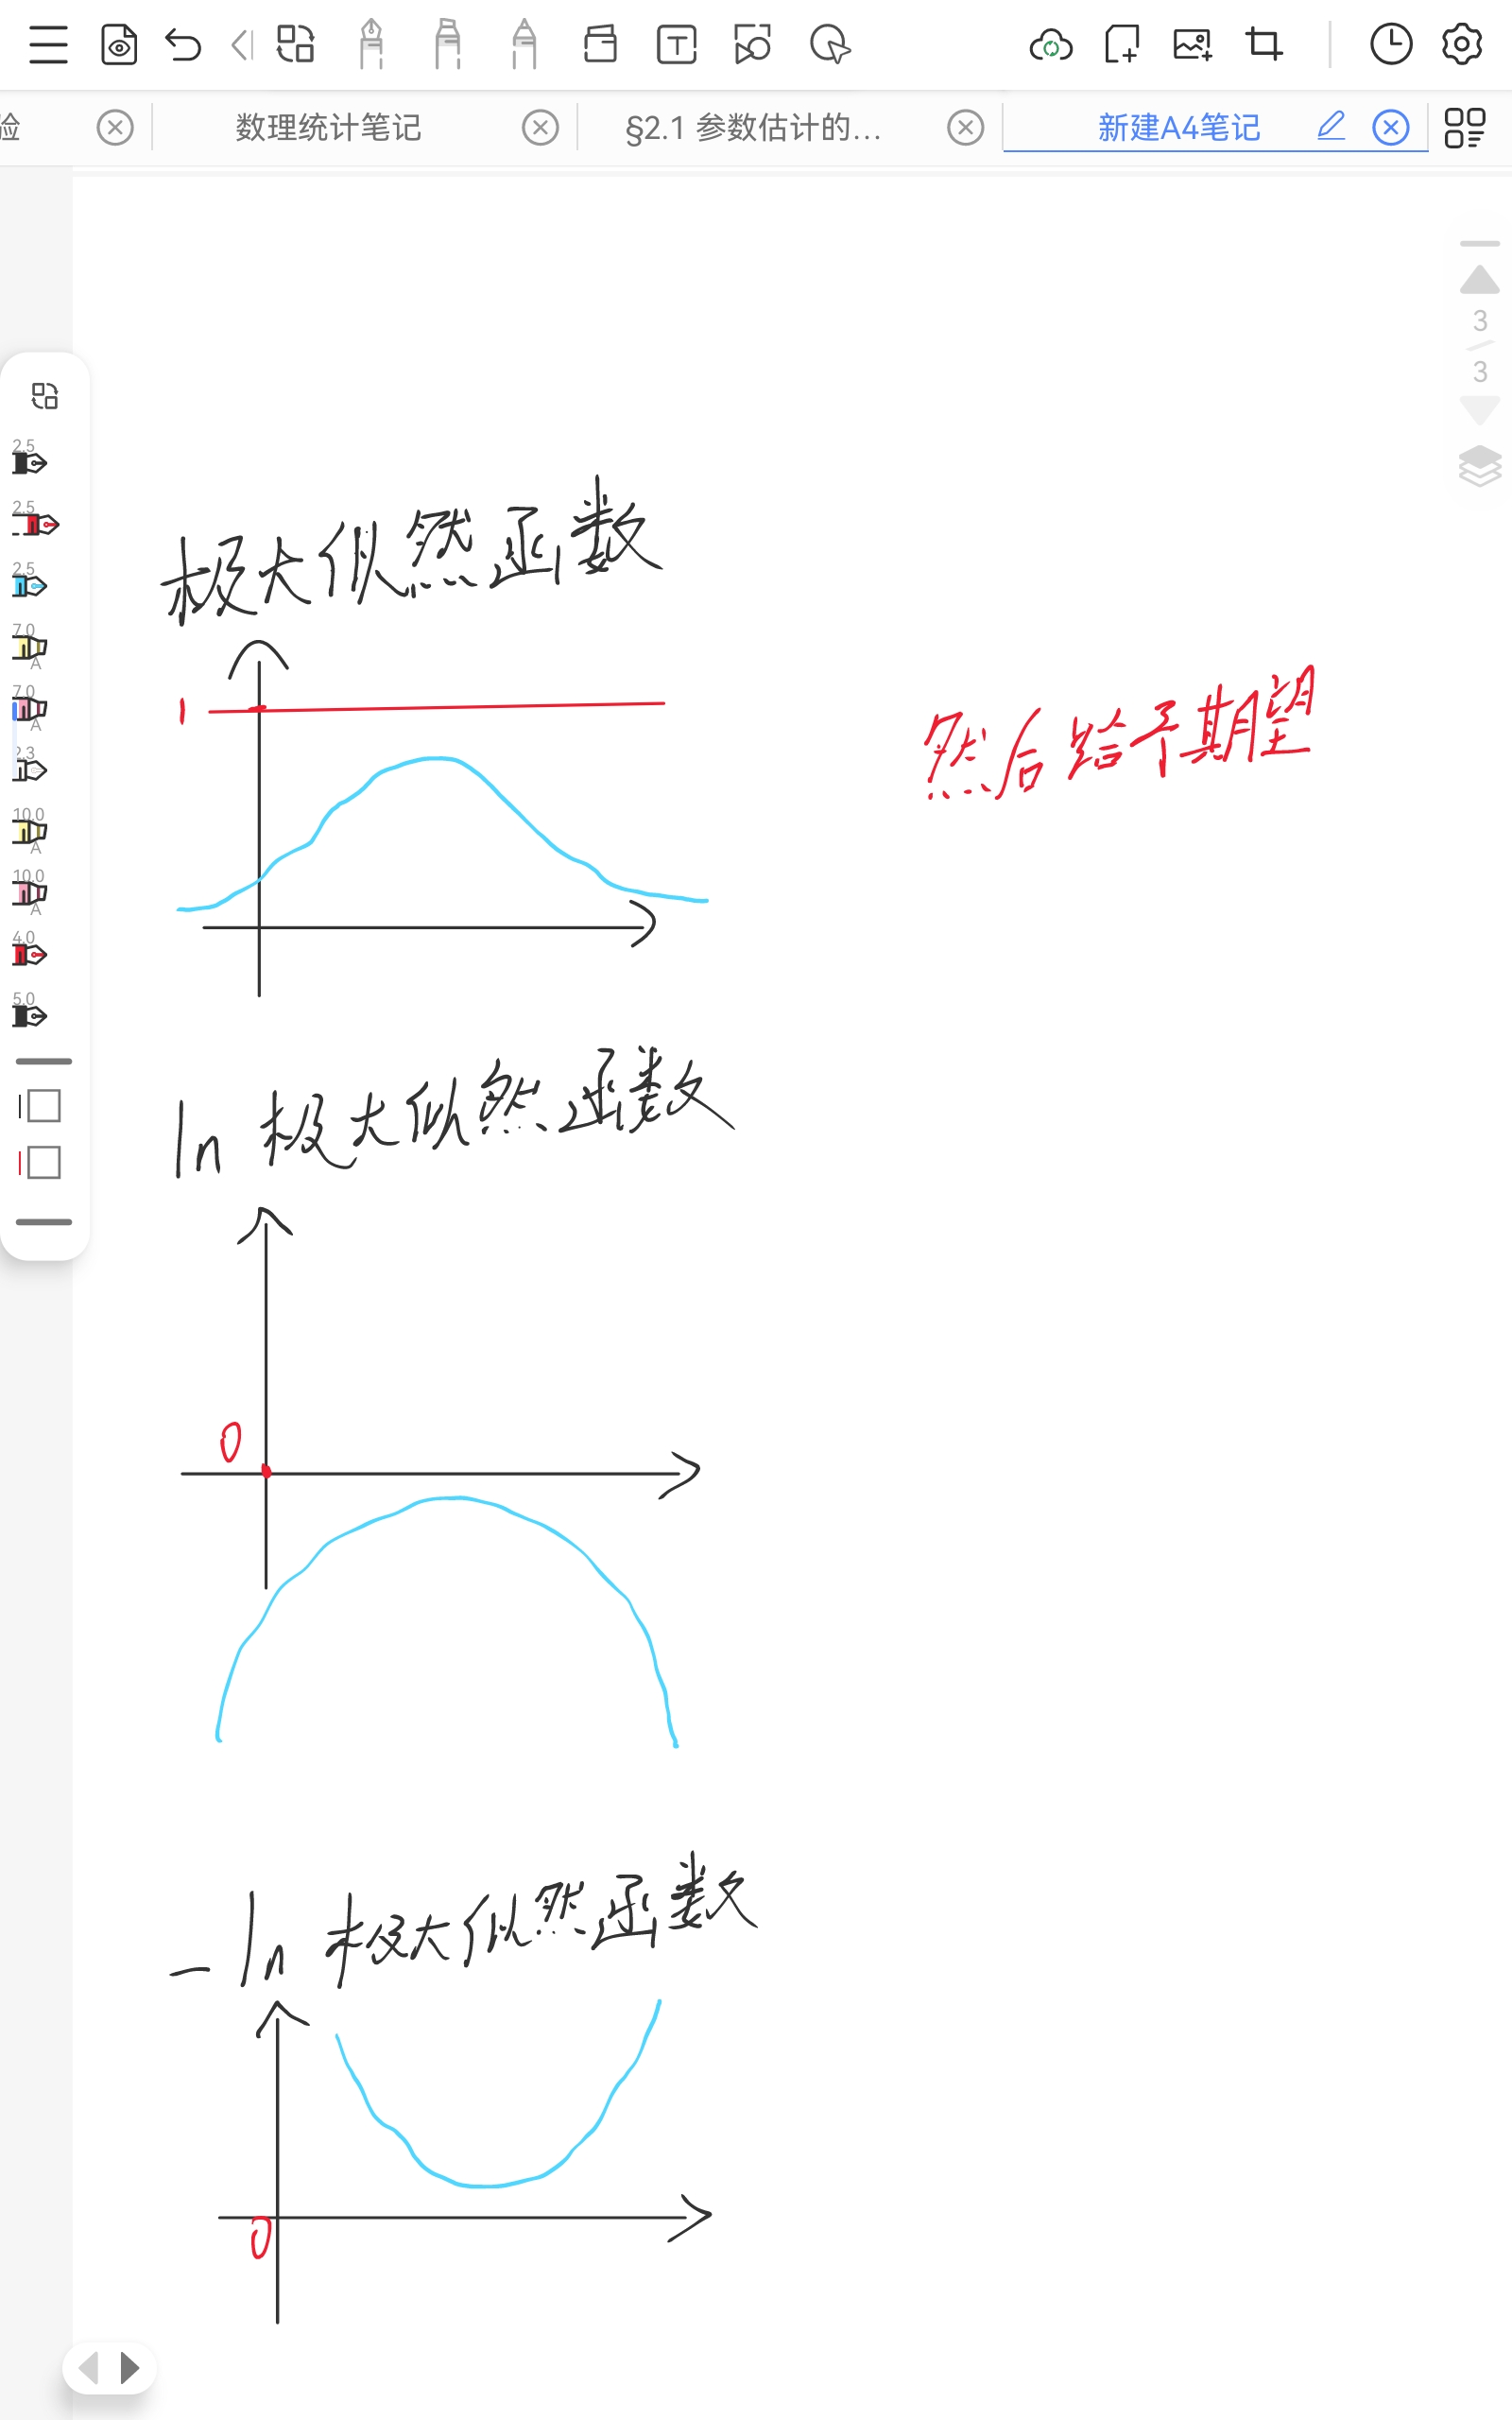 验
数理统计笔记
§2.1 参数估计的...
新建A4笔记
3
3
2.5
2.5
2.5
7.0
A
7.0
A
2.3
10.0
A
10.0
A
4.0
5.0
极大似然函数
1
然后给予期望
ln 极大似然函数
0
-ln 极大似然函数
0